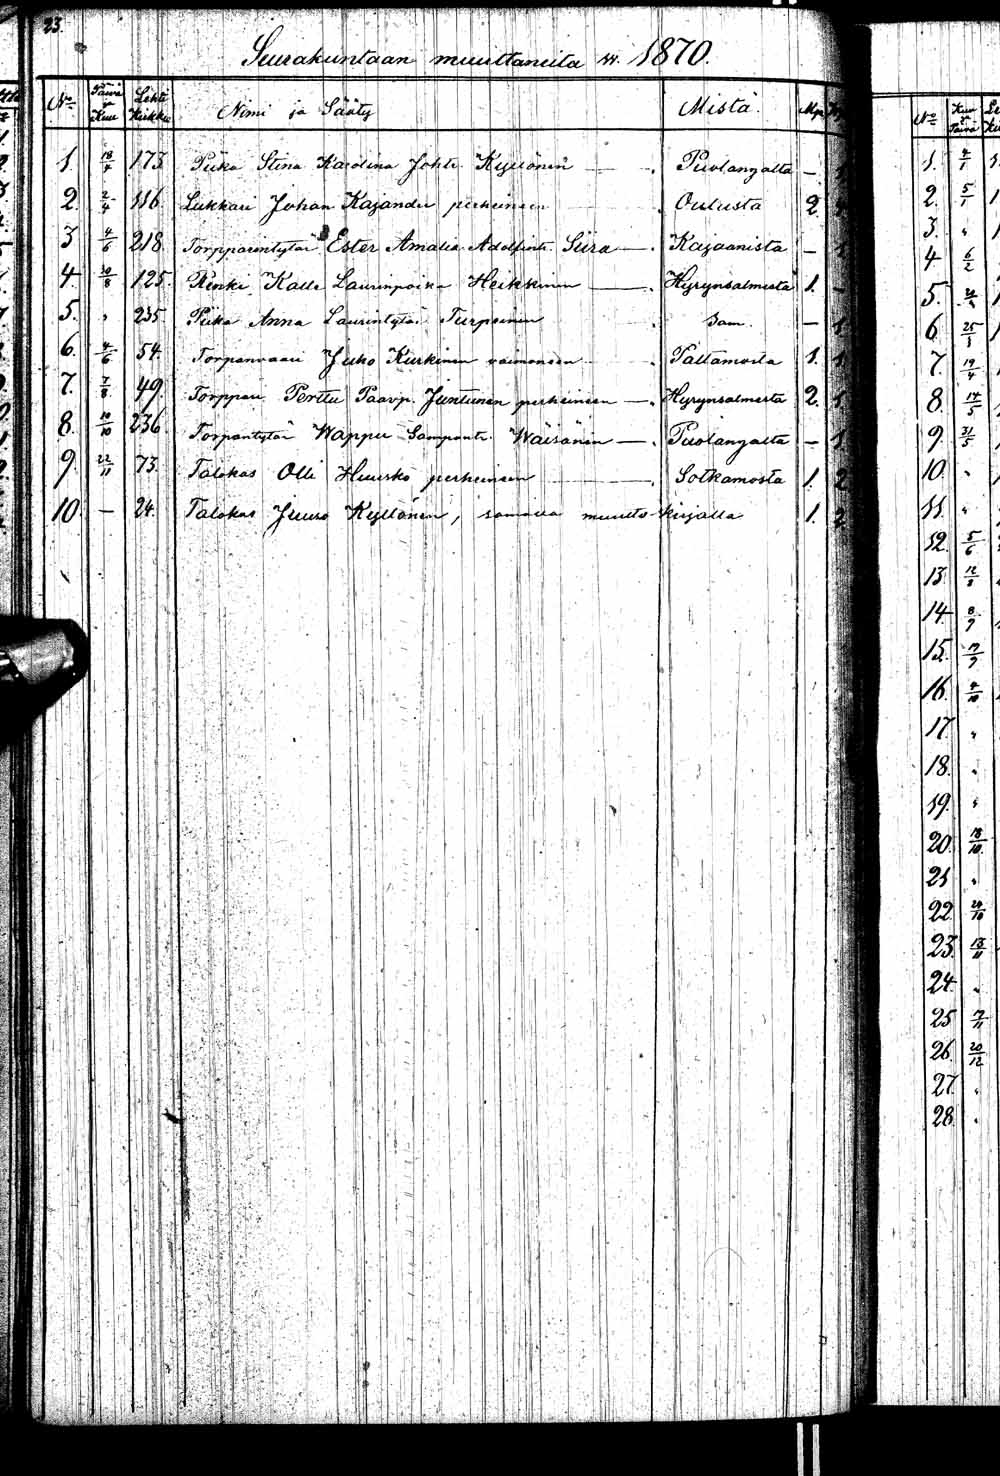 23.
Seurakuntaan muuttaneita v. 1870.
No Päivä ja Kuu Lehti Kirkko Nimi ja Sääty Mistä. Mp.
1. 18/4 173. Piika Stina Karolina Johtr. Kyllönen — Puolangalta — 1.
2. 2/4 116. Lukkari Johan Kajander perheinsen Oulusta 2.
3 4/6 218. Torpparintytär Ester Amalia Adolfintr. Siira — Kajaanista —
4. 20/8 125. Renki Kalle Laurinpoika Heikkinen — Hyrynsalmesta 1. —
5. " 235. Piika Anna Laurintytär Turpeinen Sam. — 1.
6. 4/6 54. Torpanvaari Juho Kurkinen vaimonsen Paltamosta 1. 1.
7. 7/8 49. Torppari Perttu Paavp. Juntunen perheinsen — Hyrynsalmesta 2. 1.
8. 10/10 236. Torpantytär Wappu Sampantr. Wäisänen — Puolangalta — 1.
9. 22/11 73. Talokas Olli Huusko perheinsen Sotkamosta 1. 2
10. — 24. Talokas Juuso Kyllönen, samalla muutto kirjalla 1. 2.
No Kuu ja Päivä
1. 4/1
2. 5/1
3. "
4 6/2
5.
6 25/3
7. 19/4
8. 14/5
9. 31/5
10. "
11. "
12. 5/6
13. 12/8
14. 8/9
15. 17/9
16. 4/10
17. "
18. "
19. "
20. 18/10.
21 "
22. 24/10
23. 13/11
24. "
25 17/11
26. 20/12
27. "
28. "